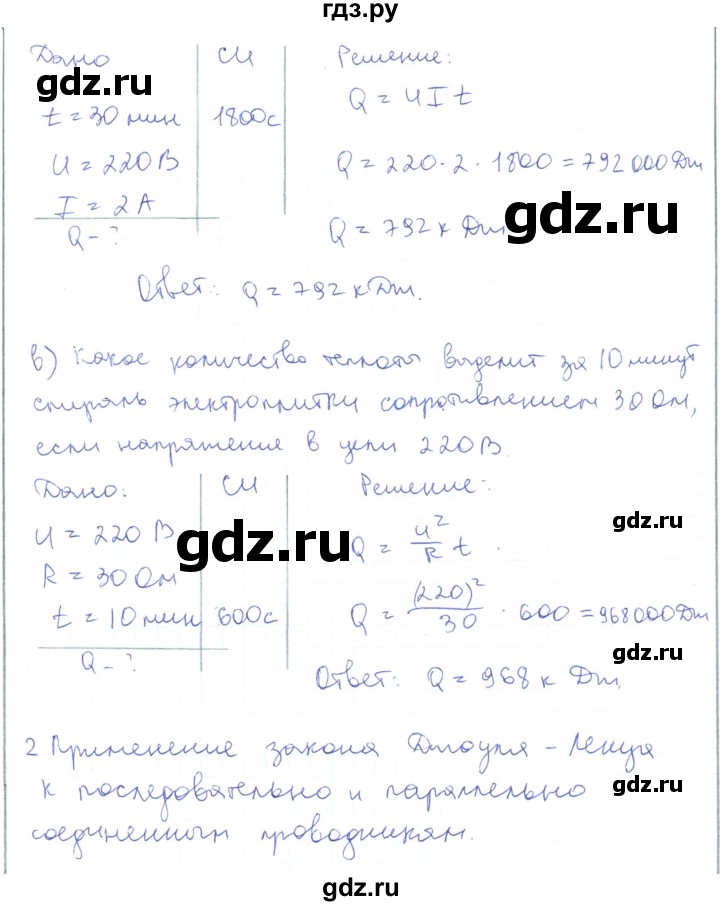 гдз.ру
Дано СИ Решение:
gdz.ru
t = 30 мин 1800с Q = UIt
U = 220 В Q = 220 · 2 · 1800 = 792 000 Дж
I = 2 А gdz.ru
Q - ? Q = 792 к Дж
Ответ: Q = 792 кДж.
в) Какое количество теплоты выделит за 10 минут
спираль электроплитки сопротивлением 30 Ом,
если напряжение в цепи 220 В.
Дано: СИ Решение:
gdz.ru
U = 220 В gdz.ru Q = U²/R t.
R = 30 Ом
t = 10 мин 600с Q = (220)²/30 · 600 = 968000 Дж
gdz.ru
Q - ?
Ответ: Q = 968 к Дж.
2 Применение закона Джоуля - Ленца
к последовательно и параллельно
gdz.ru
соединенным проводникам.
gdz.ru